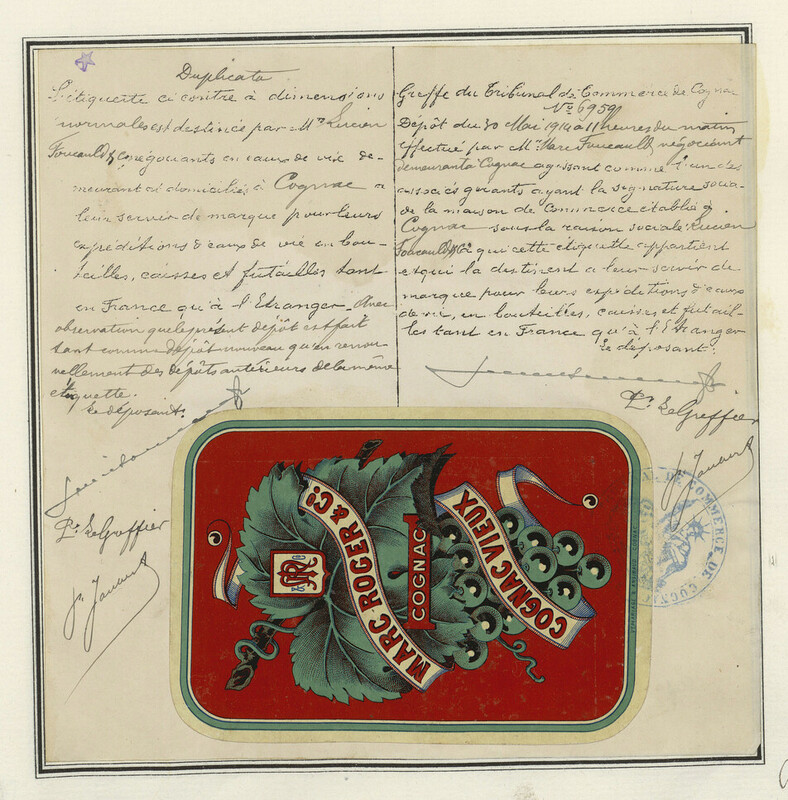 Duplicata
L'étiquette ci contre à dimensions
normales est destinée par Mrs Lucien
Foucauld & Co négociants en eaux de vie de-
meurant et domiciliés à Cognac a
leur servir de marque pour leurs
expéditions d'eaux de vie en bou-
teilles, caisses et futailles tant
en France qu'à l'Etranger. Avec
observation que le présent dépôt est fait
tant comme dépôt nouveau qu'en renou-
vellement des dépôts antérieurs de la même
étiquette.
Le déposant:
Pr. Le Greffier
Greffe du Tribunal de Commerce de Cognac
No 6959
Dépôt du 30 Mai 1914 à 11 heures du matin
effectué par Mr Marc Foucauld négociant
demeurant à Cognac agissant comme l'un des
associés gérants ayant la signature socia-
le de la maison de Commerce établie à
Cognac sous la raison sociale: Lucien
Foucauld & Co à qui cette étiquette appartient
et qui la destinent a leur servir de
marque pour leurs expéditions d'eaux
de vie, en bouteilles, caisses et futail-
les tant en France qu'à l'Etranger
Le déposant:
Pr. Le Greffier
MARC ROGER & Co.
COGNAC
COGNAC VIEUX
MR
DE COMMERCE DE COGNAC